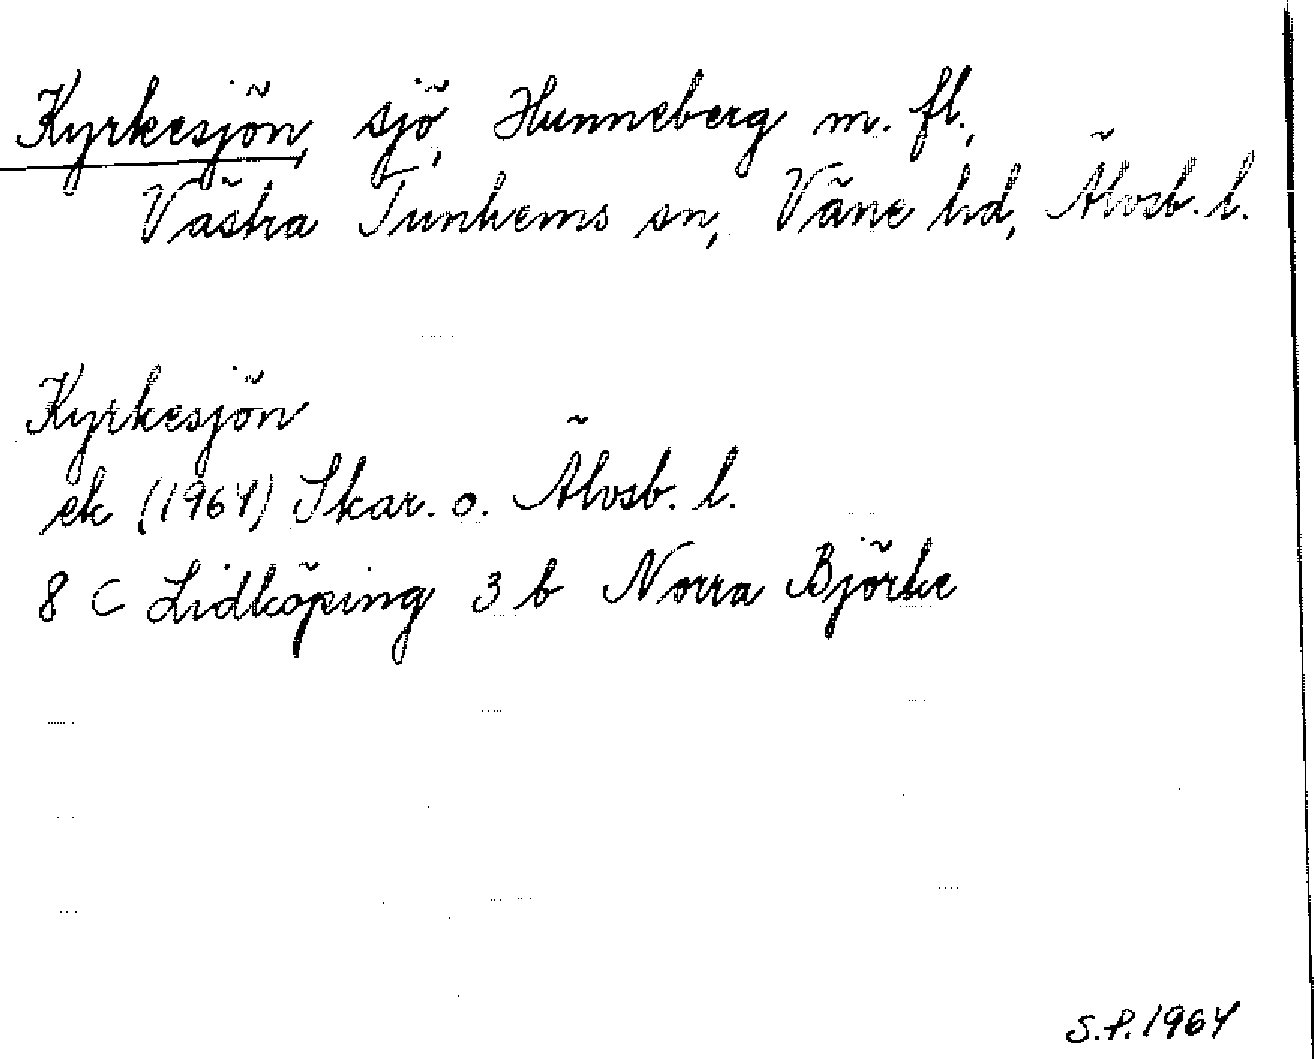 Kyrkesjön, sjö, Hunneberg m. fl.,
Västra Tunhems sn, Väne hd, Älvsb. l.
Kyrkesjön
ek (1964) Skar. o. Älvsb. l.
8 C Lidköping 3 b Norra Björke
S.P. 1964